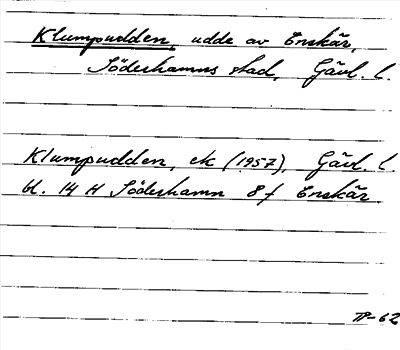 Klumpudden, udde av Enskär,
Söderhamns stad, Gävl. l.
Klumpudden, ek (1957), Gävl. l.
bl. 14 H Söderhamn 8 f Enskär
TP-62